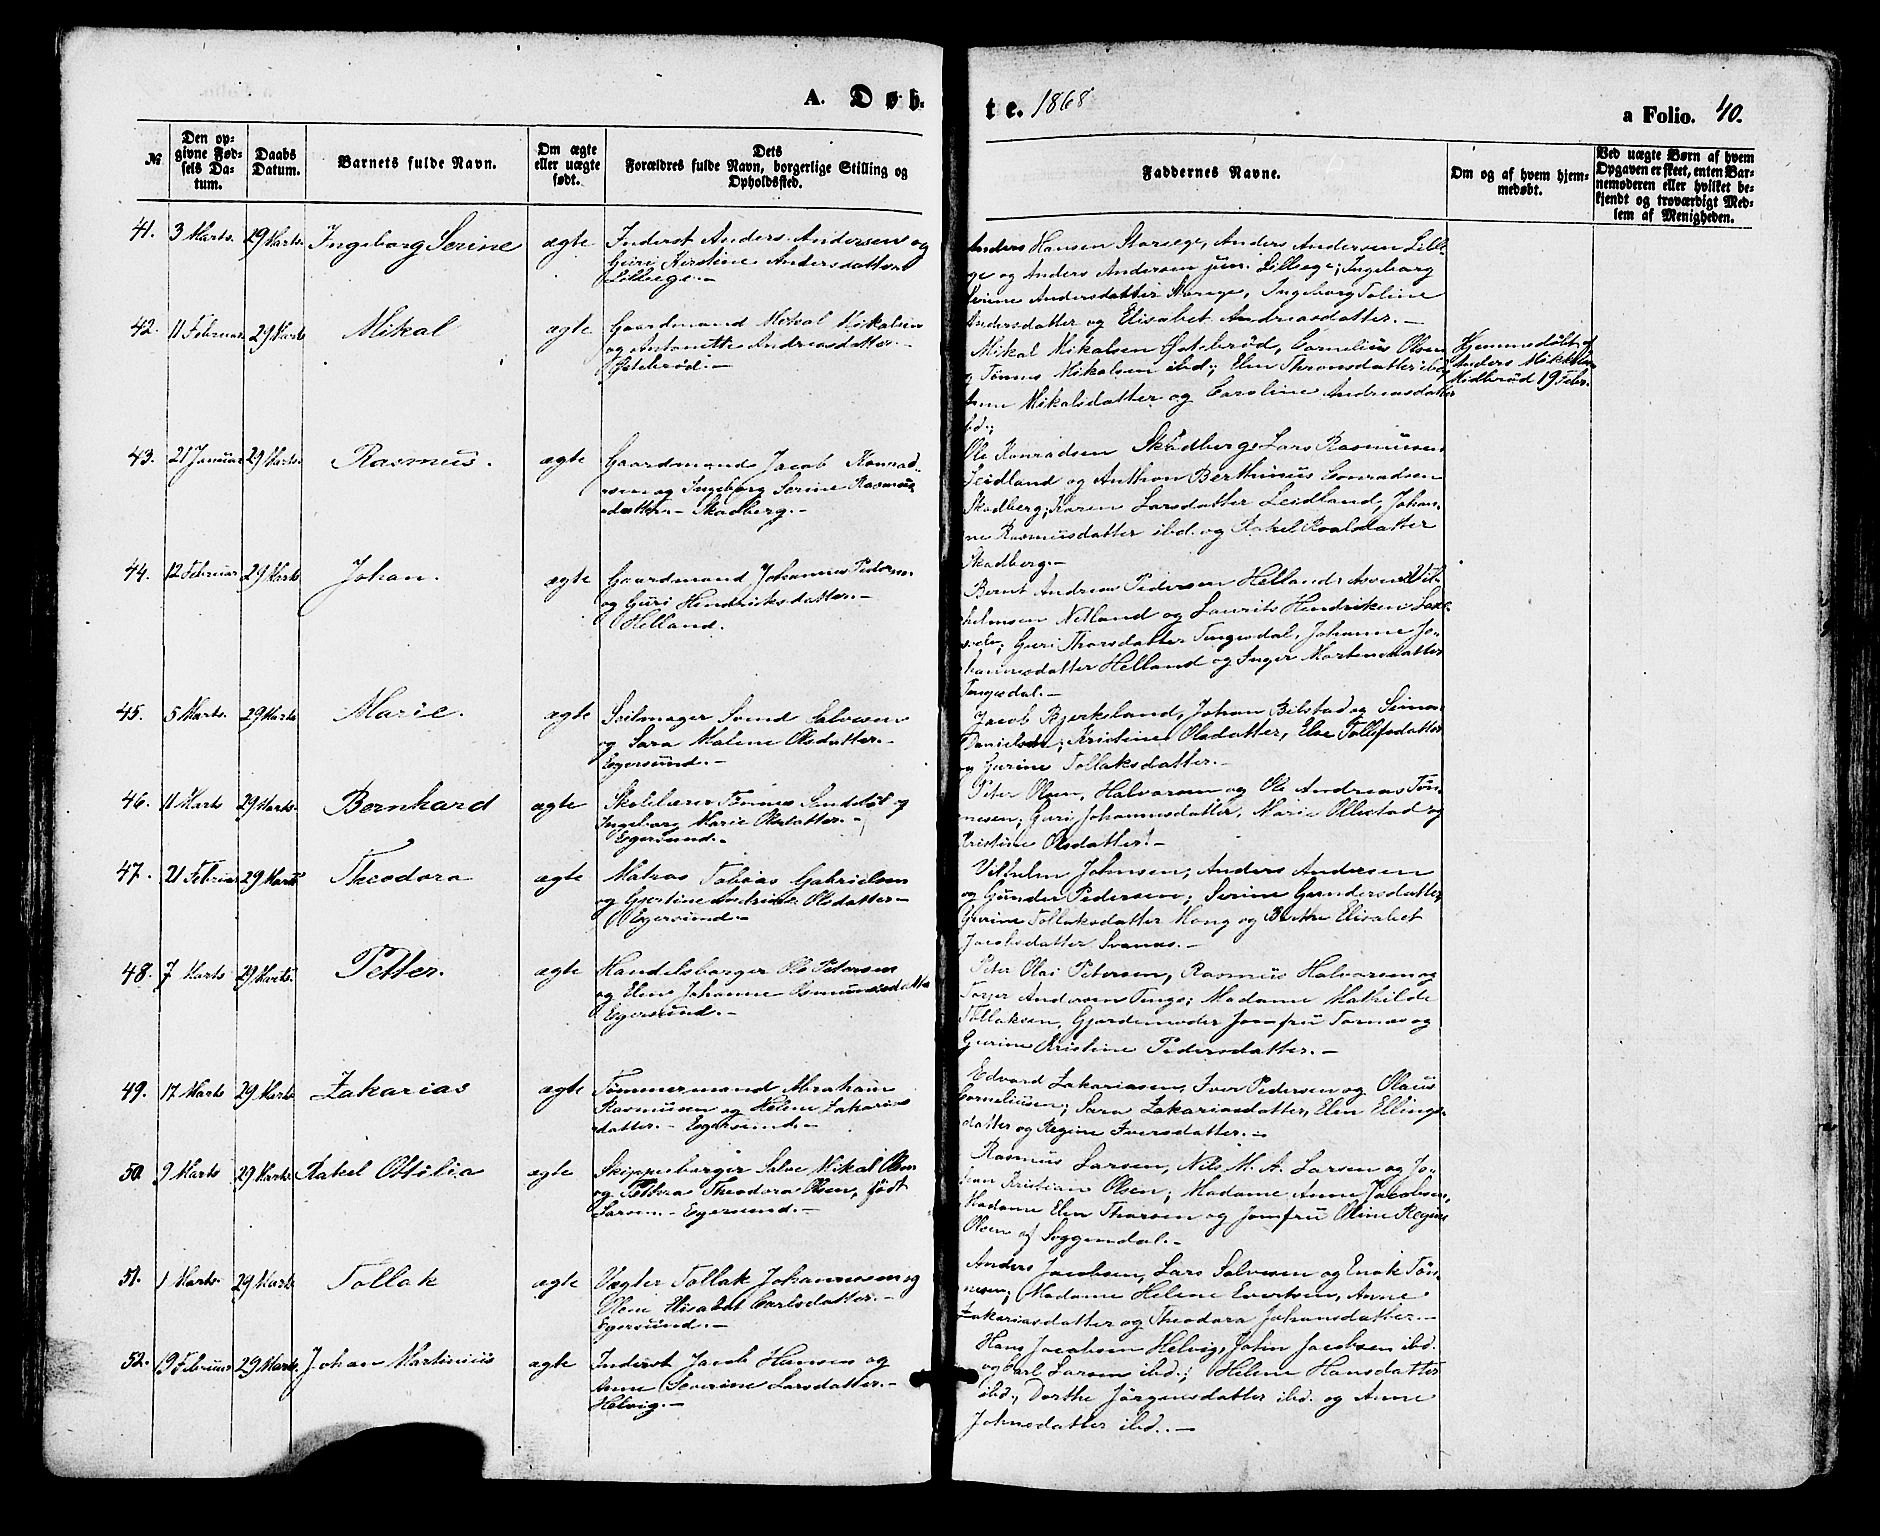 A. Døb-
te. 1868
a Folio. 40.
№
Den op-
givne Fød-
sels Da-
tum.
Daabs
Datum.
Barnets fulde Navn.
Om ægte
eller uægte
født.
Dets
Forældres fulde Navn, borgerlige Stilling og
Opholdssted.
Faddernes Navne.
Om og af hvem hjem-
medøbt.
Ved uægte Børn af hvem
Opgaven er skeet, enten Bar-
nemoderen eller hvilket be-
kjendt og troværdigt Med-
lem af Menigheden.
41. 3 Marts. 29 Marts. Ingeborg Serine ægte
Inderst Anders Andersen og
Guri Kirstine Andersdatter
Lillege.-
Anders Hansen Storeege, Anders Andersen Lille-
ge og Anders Andersen jun. Lilleege; Ingeborg
Serine Andersdatter Storege, Ingeborg Toline
Andersdatter og Elisabet Andreasdatter.-
42. 11 Februar 29 Marts Mikal ægte
Gaardmand Mikal Mikalsen
og Antonette Andreasdatter.-
Østebrød.-
Mikal Mikalsen Østebrød, Cornelius Olsen
og Tønnes Mikalsen ibd; Elen Thronsdatter ibd,
Anne Mikalsdatter og Caroline Andreasdatter
ibd;
Hjemmedøbt af
Anders Mikkelsen
Midbrød 19 Febr.
43. 21 Januar 29 Marts. Rasmus. ægte
Gaardmand Jacob Konrad-
sen og Ingeborg Serine Rasmus-
datter.- Skadberg.-
Ole Konradsen Skadberg, Lars Rasmussen
Leidland og Anthon Berthinius Conradsen
Skadberg; Karen Larsdatter Leidland, Johan-
ne Rasmusdatter ibd. og Rakel Roalsdatter
Skadberg.-
44. 12 Februar 29 Marts Johan. ægte
Gaardmand Johannes Pedersen
og Guri Hendriksdatter.-
Helland.
Bernt Andreas Pedersen Helland, Asser Vil-
helmsen Netland og Laurits Hendriksen
Guri Thorsdatter Tengesdal, Johanne Jo-
hannesdatter Helland og Inger Mortensdatter
Tengesdal.-
45. 5 Marts. 29 Marts Marie. ægte
Seilmager Svend Salvesen
og Sara Malene Olsdatter.-
Egersund.-
Jacob Bjerkeland, Johan Bilstad og Simon
Danielsen; Kristine Olsdatter, Else Tollefsdatter
og Gurine Tollaksdatter.-
46. 11 Marts 29 Marts. Bernhard ægte
Skolelærer Tønnes Sanddøl og
Ingeborg Marie Olsdatter.-
Egersund.-
Peter Olsen, Halvorsen og Ole Andreas Tøn-
nesen; Guri Johannesdatter, Marie Ollestad og
Kristine Olsdatter.-
47. 21 Februar 29 Marts Theodora ægte
Matros Tobias Gabrielsen
og Gjertine Olsdatter.-
Egersund.-
Vilhelm Johnsen, Anders Andersen
og Gunder Pedersen; Serine Gundersdatter,
Gurine Tollaksdatter Hong og Berthe Elisabet
Jacobsdatter Svanes.-
48. 7 Marts 29 Marts. Petter. ægte
Handelsborger Ole Petersen
og Elen Johanne Osmundsdatter
Egersund.-
Peter Olai Petersen, Rasmus Halvorsen og
Torger Andersen Tengs; Madame Mathilde
Tollaksen, Gjordemoder Jomfru Tornæs og
Gurine Kristine Pedersdatter.-
49. 17 Marts 29 Marts Zakarias ægte
Tømmermand Abraham
Rasmusen og Helene Zakarias-
datter.- Egersund.-
Edvard Zakariasen, Iver Pedersen og Olaus
Corneliusen; Sara Zakariasdatter, Elen Ellings-
datter og Regine Iversdatter.-
50. 9 Marts 29 Marts. Rakel Ottilia ægte
Skipperborger Salve Mikal Olsen
og Petra Theodora Olsen, født
Larsen.- Egersund.-
Rasmus Larsen, Nils M. A. Larsen og Jo-
han Kristian Olsen; Madame Anne Jacobsen,
Madame Elen Thorsen og Jomfru Oline Regine
Olsen af Soggendal.-
51. 1 Marts. 29 Marts Tollak ægte
Vægter Tollak Johannesen og
Olene Elisabet Carlsdatter.-
Egersund.-
Anders Jacobsen, Lars Salvesen og Enok Tøn-
nesen; Madame Helene Evertsen, Anne
Zakariasdatter og Theodora Johansdatter.-
52. 19 Februar 29 Marts. Johan Martinius ægte
Inderst Jacob Hansen og
Anne Severine Larsdatter.-
Helvig.-
Hans Jacobsen Helvig, John Jacobsen ibd.
og Carl Larsen ibd.; Helene Hansdatter
ibd., Dorthe Jørgensdatter ibd. og Anne
Johnsdatter ibd..-